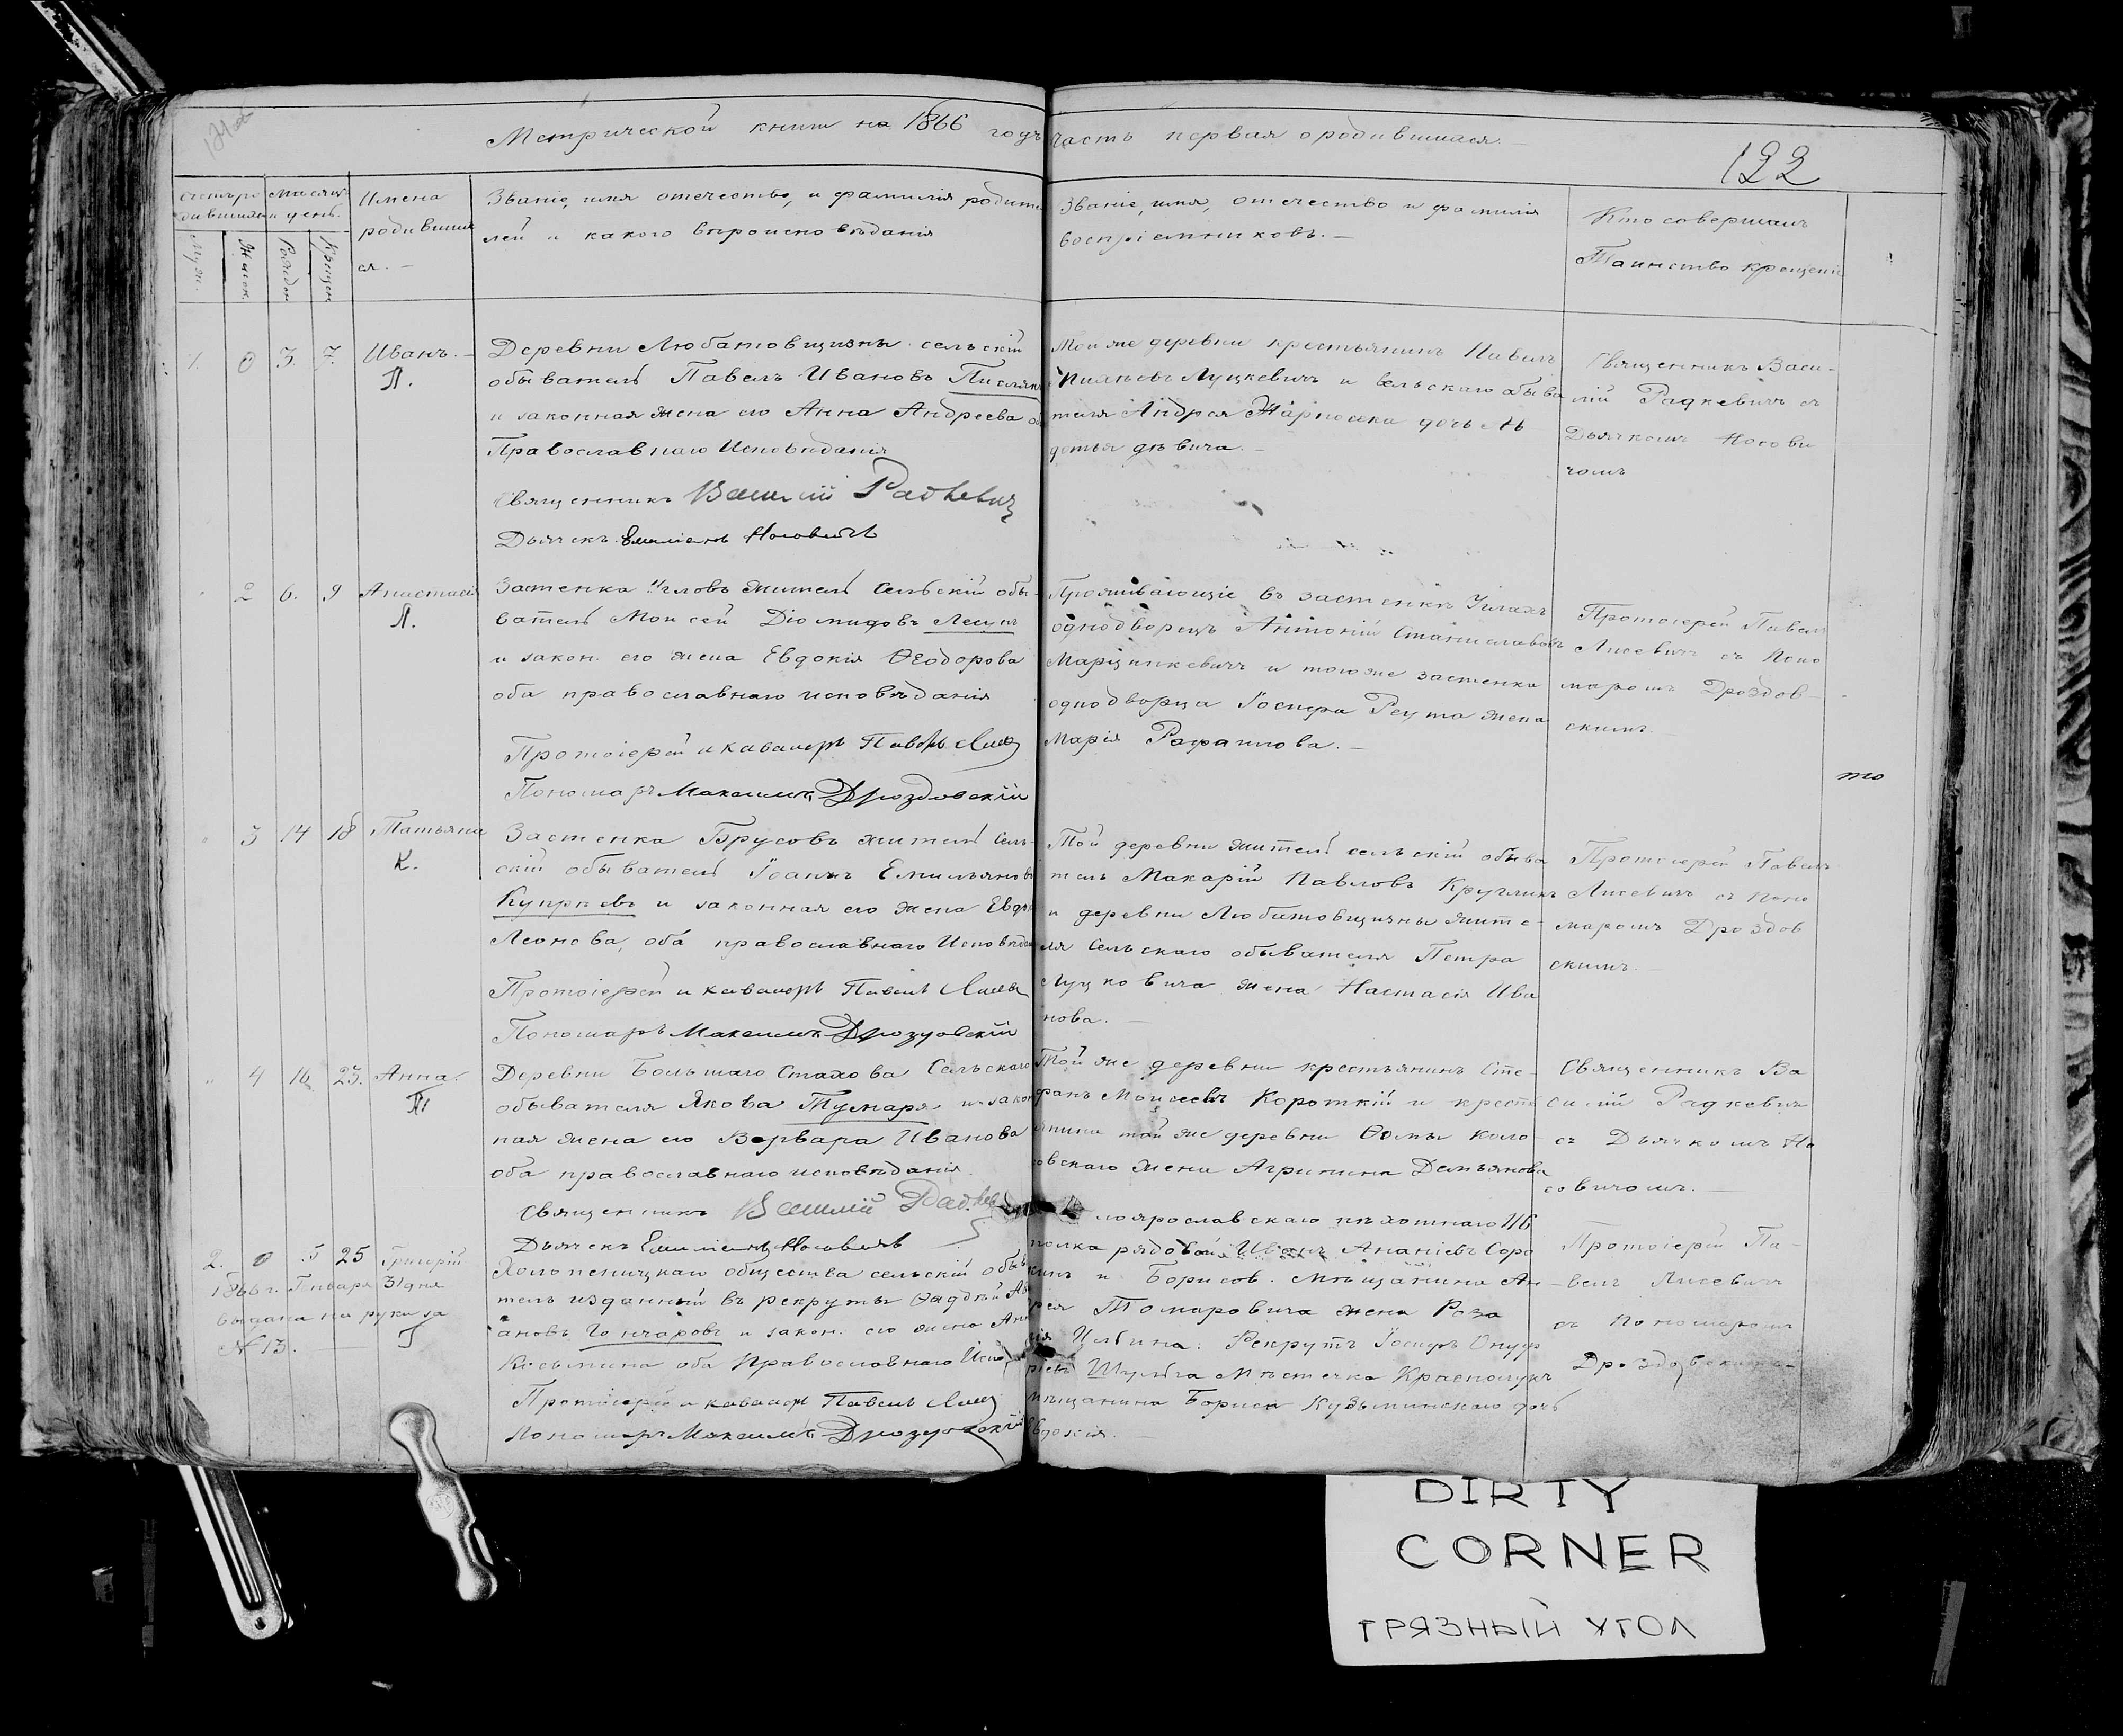 Метрической книги на 1866 годъ часть первая о родившихся.
122
Счетъ родившихся
Мѣсяцъ и день.
Имена родившихся.
Званіе, имя отечество, и фамилія родителей и какого вѣроисповѣданія
Званіе, имя, отечество и фамилія воспріемниковъ.
Кто совершалъ Таинство крещенія
Муж.
Женск.
Рожден
Крещен
1. 0 3. 7. Иванъ.
Л.
Деревни Любатовщизны сельскій
обыватель Павелъ Ивановъ
и законная жена его Анна Андреева
Православнаго Исповѣданія
Священникъ Василій Радкевичъ
Дьячекъ Емиліанъ Носовичъ
Той же деревни крестьянинъ Павелъ
Луцкевичъ и сельскаго обыва
теля Андрея дочь Ав
дотья дѣвица.
Священникъ Васи-
лій Радкевичъ съ
Дьячкомъ Носови
чомъ
2 6. 9 Анастасія
Л.
Застенка Угловъ житель сельскій обы-
ватель Моисей Діомидовъ Лесунъ
и закон. его жена Евдокія Ѳеодорова
оба православнаго исповѣданія
Протоіерей и кавалеръ Павелъ
Пономарь Максимъ Дроздовскій
Проживающіе въ застенкѣ Углахъ
однодворецъ Антоній Станиславовъ
Марцинкевичъ и тогоже застенка
однодворца Іосифа Реута жена
Марія Рафаилова.
Протоіерей Павелъ
Лисевичъ съ Поно
маромъ Дроздов-
скимъ.
то
3 14 18 Татьяна
К.
Застенка Брусовъ житель сель-
скій обыватель Іоаннъ Емильяновъ
Купрѣевъ и законная его жена
Леонова, оба православнаго Исповѣдан
Протоіерей и кавалеръ Павелъ
Пономарь Максимъ Дроздовскій
Той деревни житель сельскій обыва
тель Макарій Павловъ
и деревни Любатовщизны жите-
ля сельскаго обывателя Петра
Луцковича жена Настасія Ива
нова.
Протоіерей Павелъ
Лисевичъ съ Поно
маромъ Дроздов
скимъ.
4 16 23. Анна.
Деревни Большаго Стахова Сельскаго
обывателя Якова и закон
ная жена его Варвара Иванова
оба православнаго исповѣданія.
Священникъ Василій Радкев
Дьячекъ Емиліанъ Носовичъ
Той же деревни крестьянинъ Сте-
фанъ Моисеевъ Короткій и кресть
янина той же деревни Ѳомы
жена Агрипина Демьянова
Священникъ Ва
силій Радкевичъ
съ Дьячкомъ Но
совичомъ.
2. 0 5 25 Григорій
1866 г. Января 31 дня
выдана на руки за
№ 13.
Холопеницкаго общества сельскій обыва
тель изданный въ рекруты Ѳаддѣй
Гончаровъ и закон. его жена
Косьмина оба Православнаго
Протоіерей и кавалеръ Павелъ
Пономарь Максимъ Дроздовскій
лоярославскаго пѣхотнаго 116
полка рядовой Иванъ Ананіевъ
и Борисов. мѣщанина Ан-
дрея Томаровича жена Роза
Рекрутъ Іосифъ Онуф
ріевъ Шульга мѣстечка
мѣщанина Бориса Кузьминскаго дочь
Евдокія.
Протоіерей Па-
велъ Лисевичъ
съ Пономаромъ
Дроздовскимъ
DIRTY
CORNER
ГРЯЗНЫЙ УГОЛ